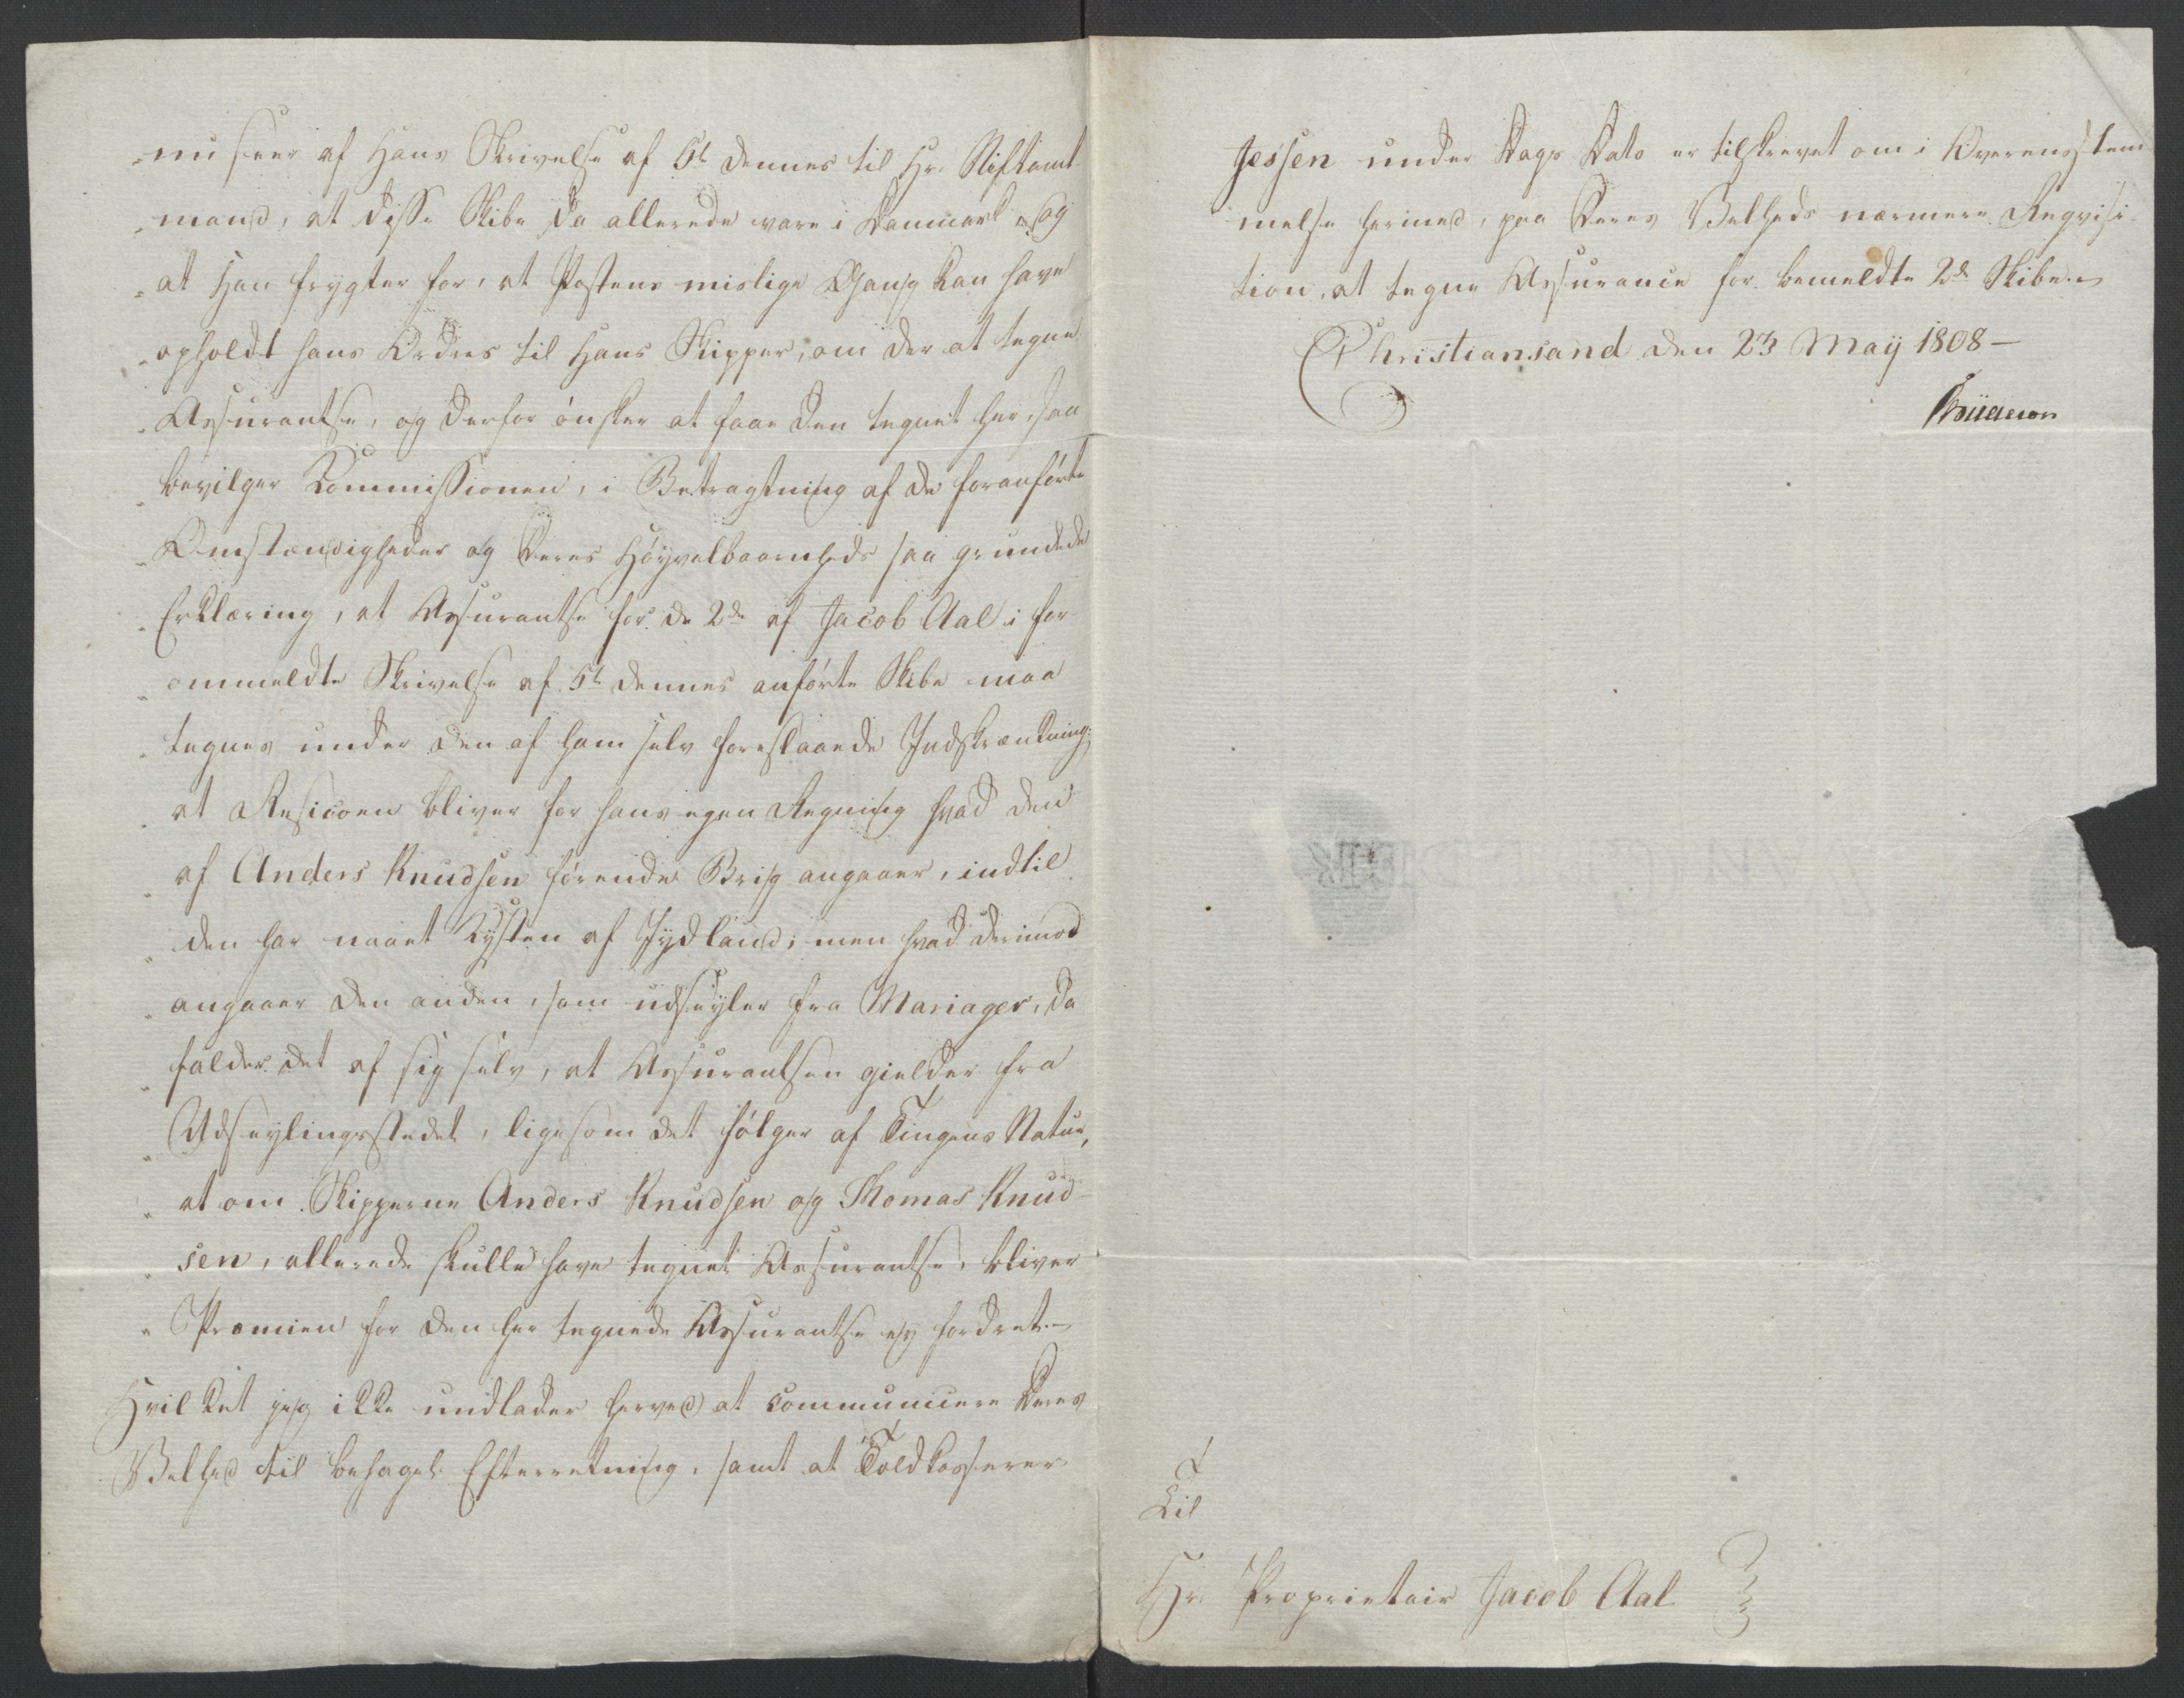 "nu seer af Hans Skrivelse af 5t dennes til Hr. Stiftamt
"mand, at disse Skibe da allerede vare i Danmark og
"at Han frygter for, at Postens mislige Gang kan have
"opholdt hans Ordres til Hans Skipper, om der at tegne
"Assurantse, og derfor ønsker at faae den tegnet her, saa
"bevilger Commissionen, i Betragtning af de foranførte
"Omstændigheder og Deres Høyvelbaarenheds saa grundede
"Erklæring, at Assurantse for de 2de af Jacob Aal i for-
"ommeldte Skrivelse af 5t dennes anførte Skibe maa
"tegnes under den af ham selv foreslaaede Indskrænkning:
"at Resicoen bliver for hans egen Regning hvad den
"af Anders Knudsen førende Brig angaaer, indtil
"den har naaet Kysten af Jydland; men hvad derimod
"angaaer den anden, som udseyler fra Mariager, da
"falder det af sig selv, at Assurantsen gielder fra
"Udseylingsstedet, ligesom det følger af Tingens Natur,
"at om Skipperne Anders Knudsen og Thomas Knud-
"sen, allerede skulle have tegnet Assurantse, bliver
"Præmien for den her tegnede Assurantse ey fordret.-
Hvilket jeg ikke undlader herved at communicere Deres
Velhed til behagel. Efterretning, samt at Toldkasserer
Jessen under Dags Dato er tilskrevet om i Overensstem
melse hermed, paa Deres Velheds nærmere Reqvisi-
tion, at tegne Assurance for bemeldte 2de Skibe.-
Christiansand den 23 Maÿ 1808-
Til
Hr. Proprietair Jacob Aal